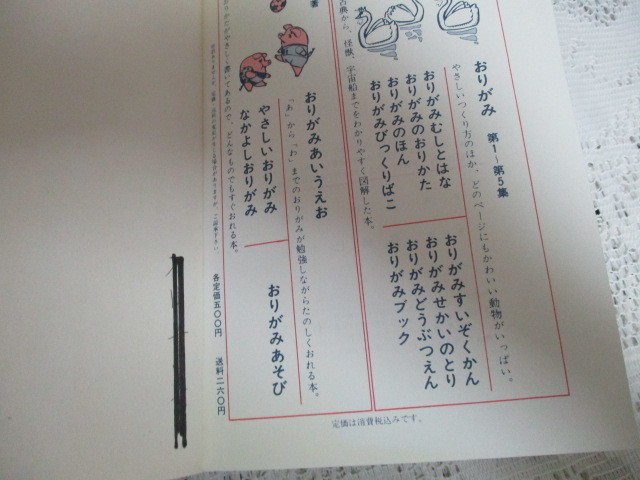 おりがみ 第1〜第5集
やさしいつくり方のほか、どのページにもかわいい動物がいっぱい。
おりがみむしとはな
おりがみのおりかた
おりがみのほん
おりがみびっくりばこ
おりがみすいぞくかん
おりがみせかいのとり
おりがみどうぶつえん
おりがみブック
古典から、怪獣、宇宙船までをわかりやすく図解した本。
著
おりがみあいうえお
「あ」から「わ」までのおりがみが勉強しながらたのしくおれる本。
やさしいおりがみ
なかよしおりがみ
おりがみあそび
おりかたがやさしく書いてあるので、どんなものでもすぐおれる本。
各定価五〇〇円 送料二六〇円
定価は消費税込みです。